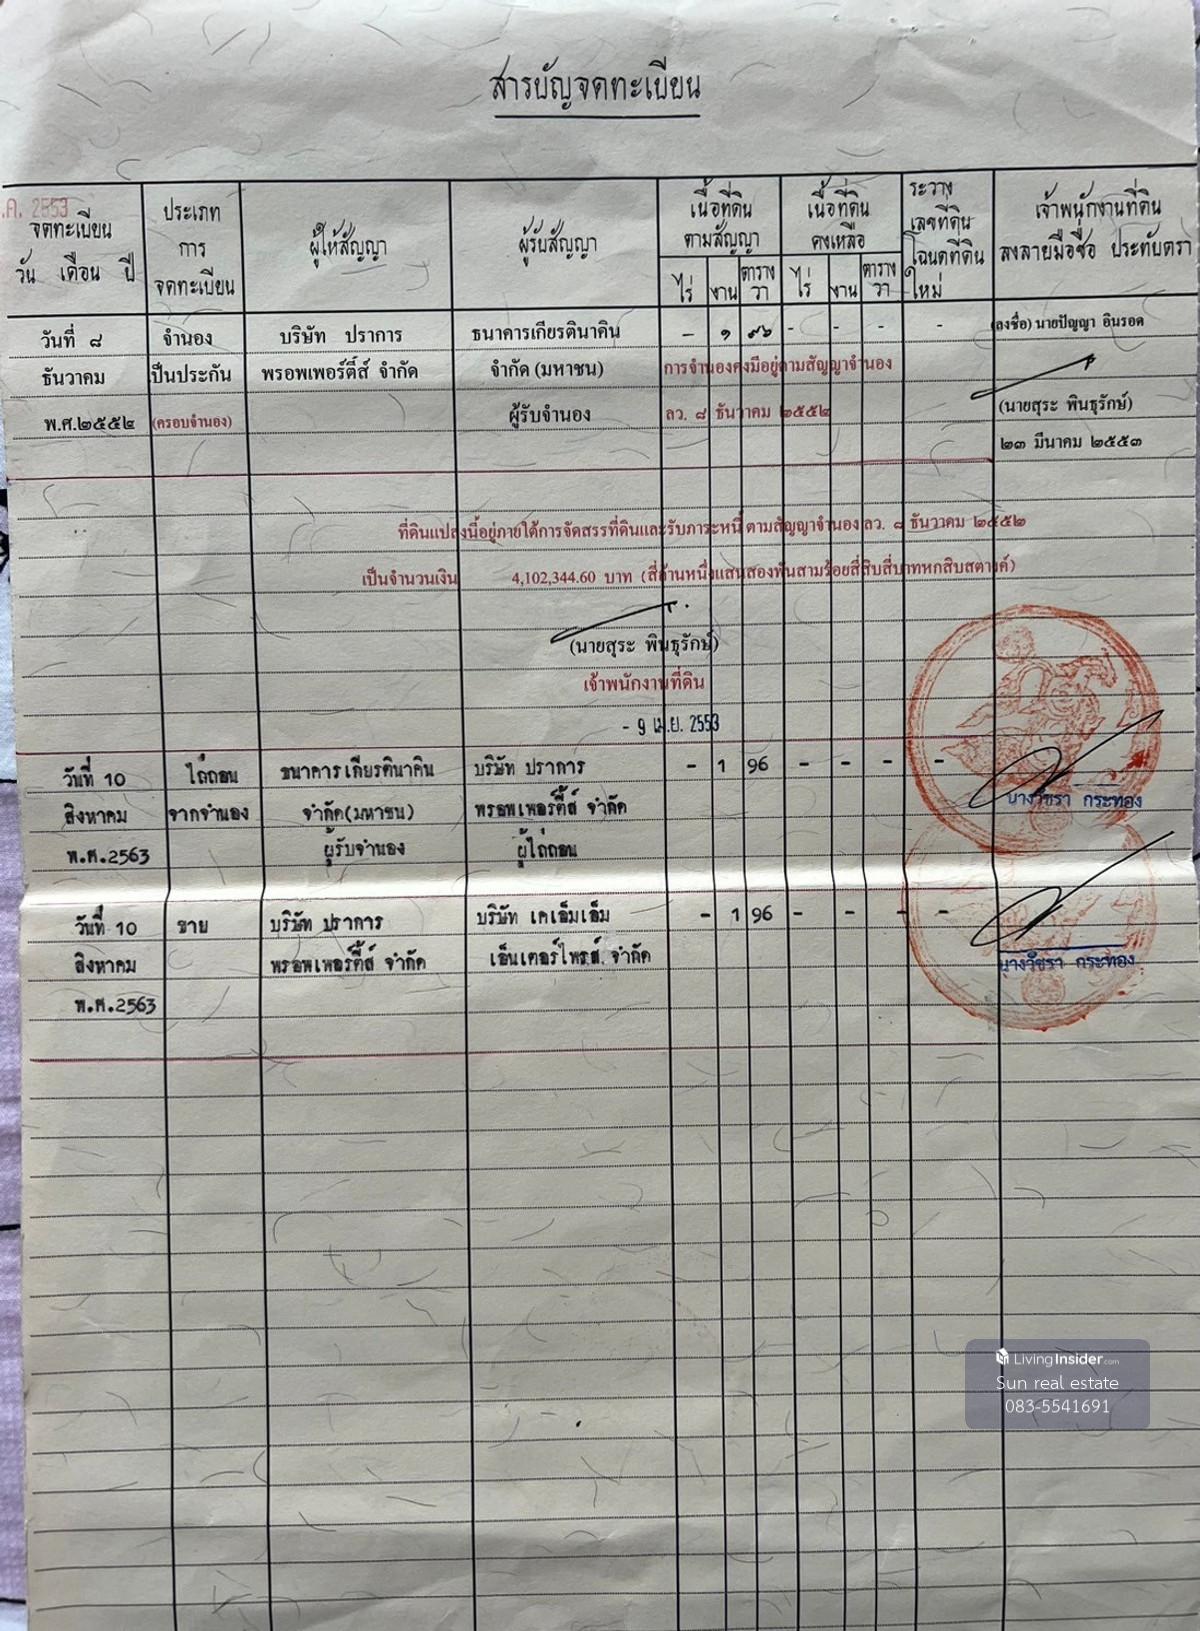 สารบัญจดทะเบียน
ค. 2553
จดทะเบียน
วัน เดือน ปี
ประเภท
การ
จดทะเบียน
ผู้ให้สัญญา
ผู้รับสัญญา
เนื้อที่ดิน
ตามสัญญา
ไร่ งาน ตาราง
วา
เนื้อที่ดิน
คงเหลือ
ไร่ งาน ตาราง
วา
ระวาง
เลขที่ดิน
โฉนดที่ดิน
ใหม่
เจ้าพนักงานที่ดิน
ลงลายมือชื่อ ประทับตรา
วันที่ ๘ จำนอง บริษัท ปราการ ธนาคารเกียรตินาคิน - ๑ ๙๖ - - - - (ลงชื่อ) นายปัญญา อินรอด
ธันวาคม เป็นประกัน พรอพเพอร์ตี้ส์ จำกัด จำกัด (มหาชน) การจำนองคงมีอยู่ตามสัญญาจำนอง
พ.ศ.๒๕๕๒ (ครอบจำนอง) ผู้รับจำนอง ลว. ๘ ธันวาคม ๒๕๕๒ (นายสุระ พินธุรักษ์)
๒๓ มีนาคม ๒๕๕๓
ที่ดินแปลงนี้อยู่ภายใต้การจัดสรรที่ดินและรับภาระหนี้ ตามสัญญาจำนอง ลว. ๘ ธันวาคม ๒๕๕๒
เป็นจำนวนเงิน 4,102,344.60 บาท (สี่ล้านหนึ่งแสนสองพันสามร้อยสี่สิบสี่บาทหกสิบสตางค์)
(นายสุระ พินธุรักษ์)
เจ้าพนักงานที่ดิน
- 9 เม.ย. 2553
วันที่ 10 ไถ่ถอน ธนาคารเกียรตินาคิน บริษัท ปราการ - 1 96 - - - -
สิงหาคม จากจำนอง จำกัด(มหาชน) พรอพเพอร์ตี้ส์ จำกัด นางวัชรา กระทอง
พ.ศ.2563 ผู้รับจำนอง ผู้ไถ่ถอน
วันที่ 10 ขาย บริษัท ปราการ บริษัท เคเอ็มเอ็ม - 1 96 - - - -
สิงหาคม พรอพเพอร์ตี้ส์ จำกัด เอ็นเตอร์ไพรส์ จำกัด นางวัชรา กระทอง
พ.ศ.2563
LivingInsider.com
Sun real estate
083-5541691